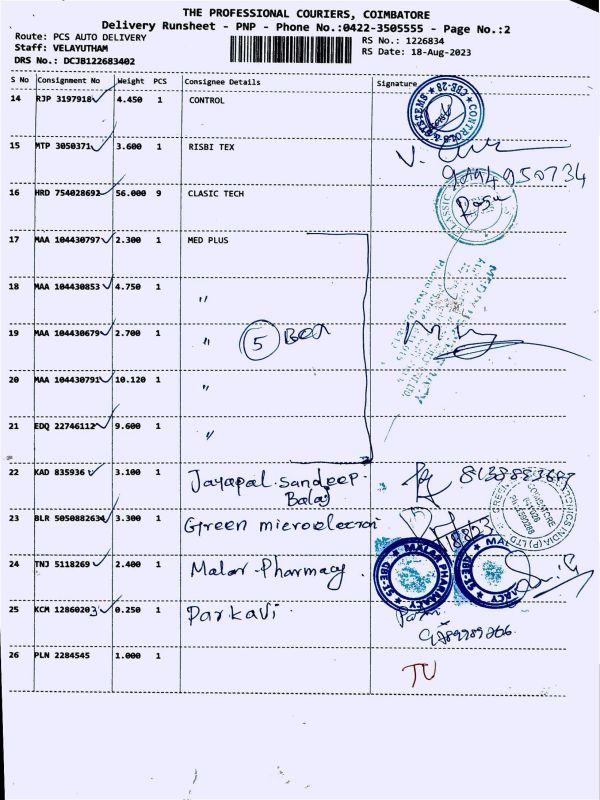 THE PROFESSIONAL COURIERS, COIMBATORE
Delivery Runsheet - PNP - Phone No.:0422-3505555 - Page No.:2
Route: PCS AUTO DELIVERY
Staff: VELAYUTHAM
DRS No.: DCJB122683402
RS No.: 1226834
RS Date: 18-Aug-2023
S No Consignment No Weight PCS Consignee Details Signature
14 RJP 3197918 4.450 1 CONTROL
15 MTP 3050371 3.600 1 RISBI TEX
16 HRD 754028692 56.000 9 CLASIC TECH
17 MAA 104430797 2.300 1 MED PLUS
18 MAA 104430853 4.750 1 "
19 MAA 104430679 2.700 1 " 5 Box
20 MAA 104430791 10.120 1 "
21 EDQ 22746112 9.600 1 "
22 KAD 835936 3.100 1 Jayapal.sandeep.
Balaj
23 BLR 5050882634 3.300 1 Green microelectroni
24 TNJ 5118269 2.400 1 Malar Pharmacy
MALAR PHARMACY
25 KCM 12860203 0.250 1 Parkavi
26 PLN 2284545 1.000 1
TU